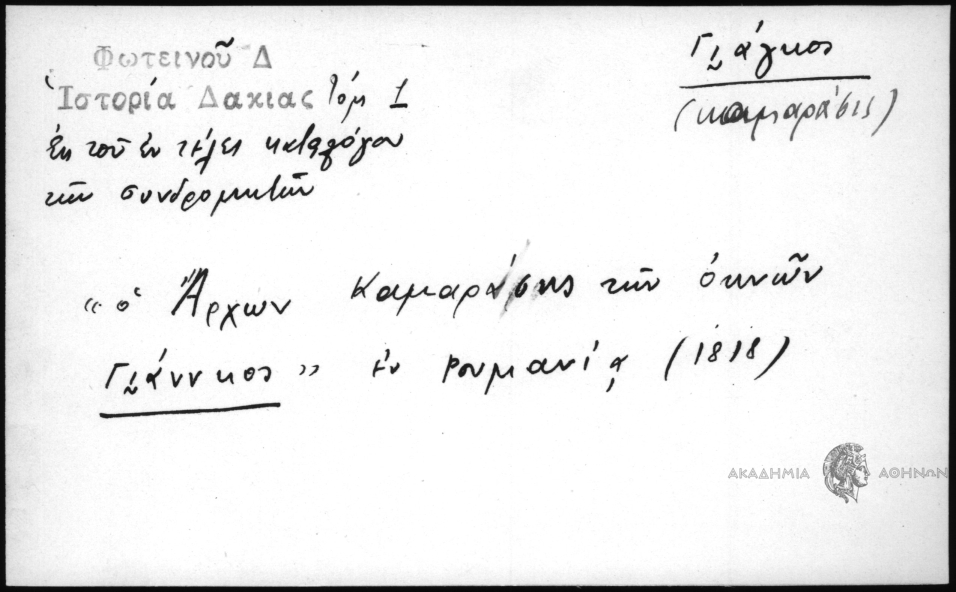 Φωτεινοῦ Δ
Ἱστορία Δακιας Τόμ 1
ἐκ τοῦ ἐν τέλει καταλόγου
τῶν συνδρομητῶν
Γιάγκος
(καμαράσης)
"ὁ Ἄρχων Καμαράσης τῶν ὀκνῶν
Γιάννκος" ἐν Ρουμανίᾳ (1818)
ΑΚΑΔΗΜΙΑ ΑΘΗΝΩΝ